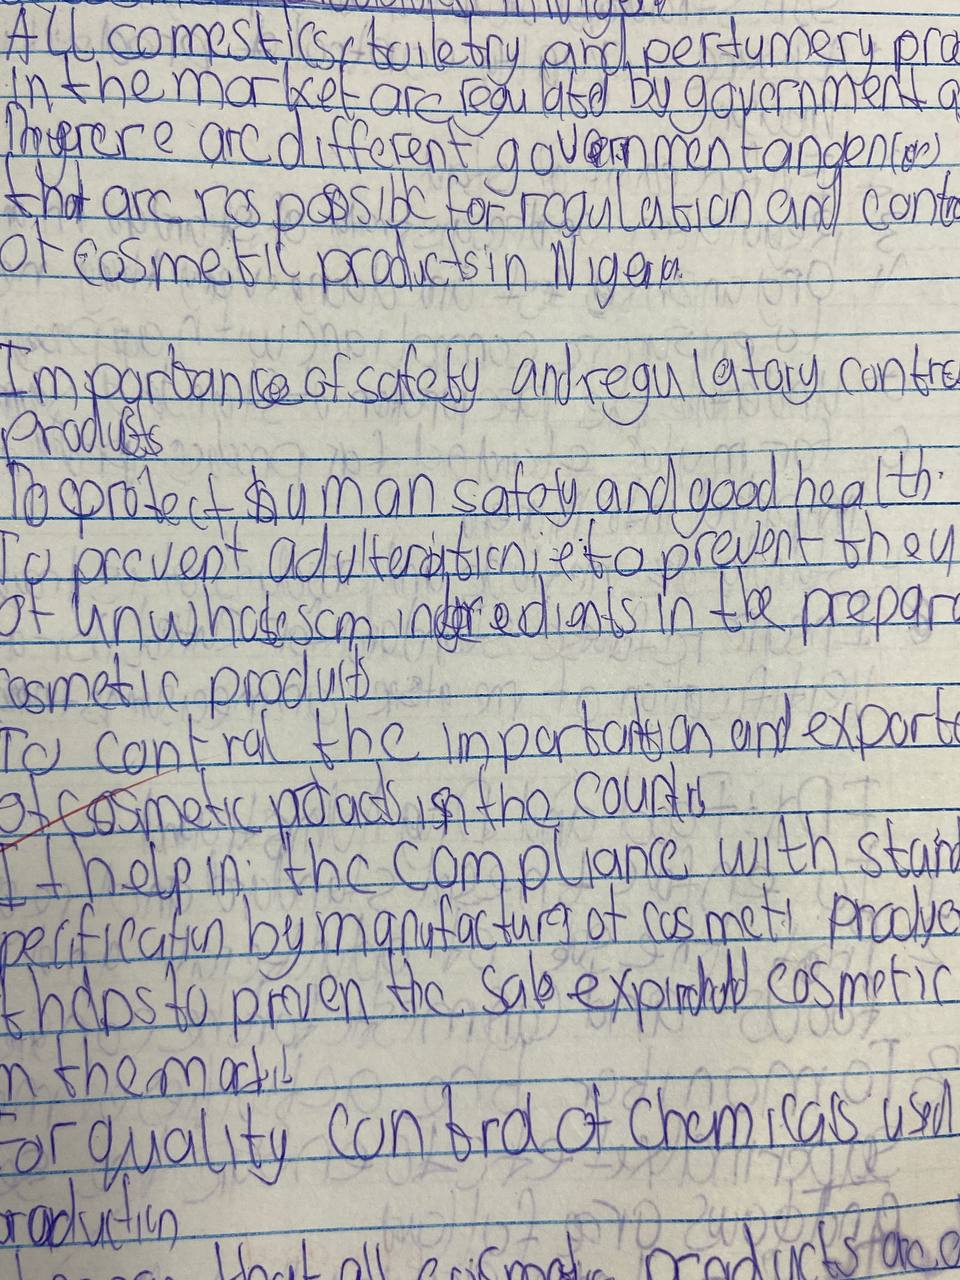 All comestics, toiletry and perfumery pro
in the market are regulated by government a
There are different government angen(ie)
that are resposible for regulation and contro
of cosmetic products in Nigeria.
Importance of safety and regulatory contro
Products
To protect human safety and good health.
To prevent adulteration; ie to prevent they
of unwholesom ingredients in the prepara
cosmetic products
To control the importation and exporta
of cosmetic products in the country
It help in the compliance with stand
pecification by manufacturers of cosmeti produc
t helps to preven the sale expired cosmetic
n the market
For quality control of chemicals used
roduction
that all cosmetic products are